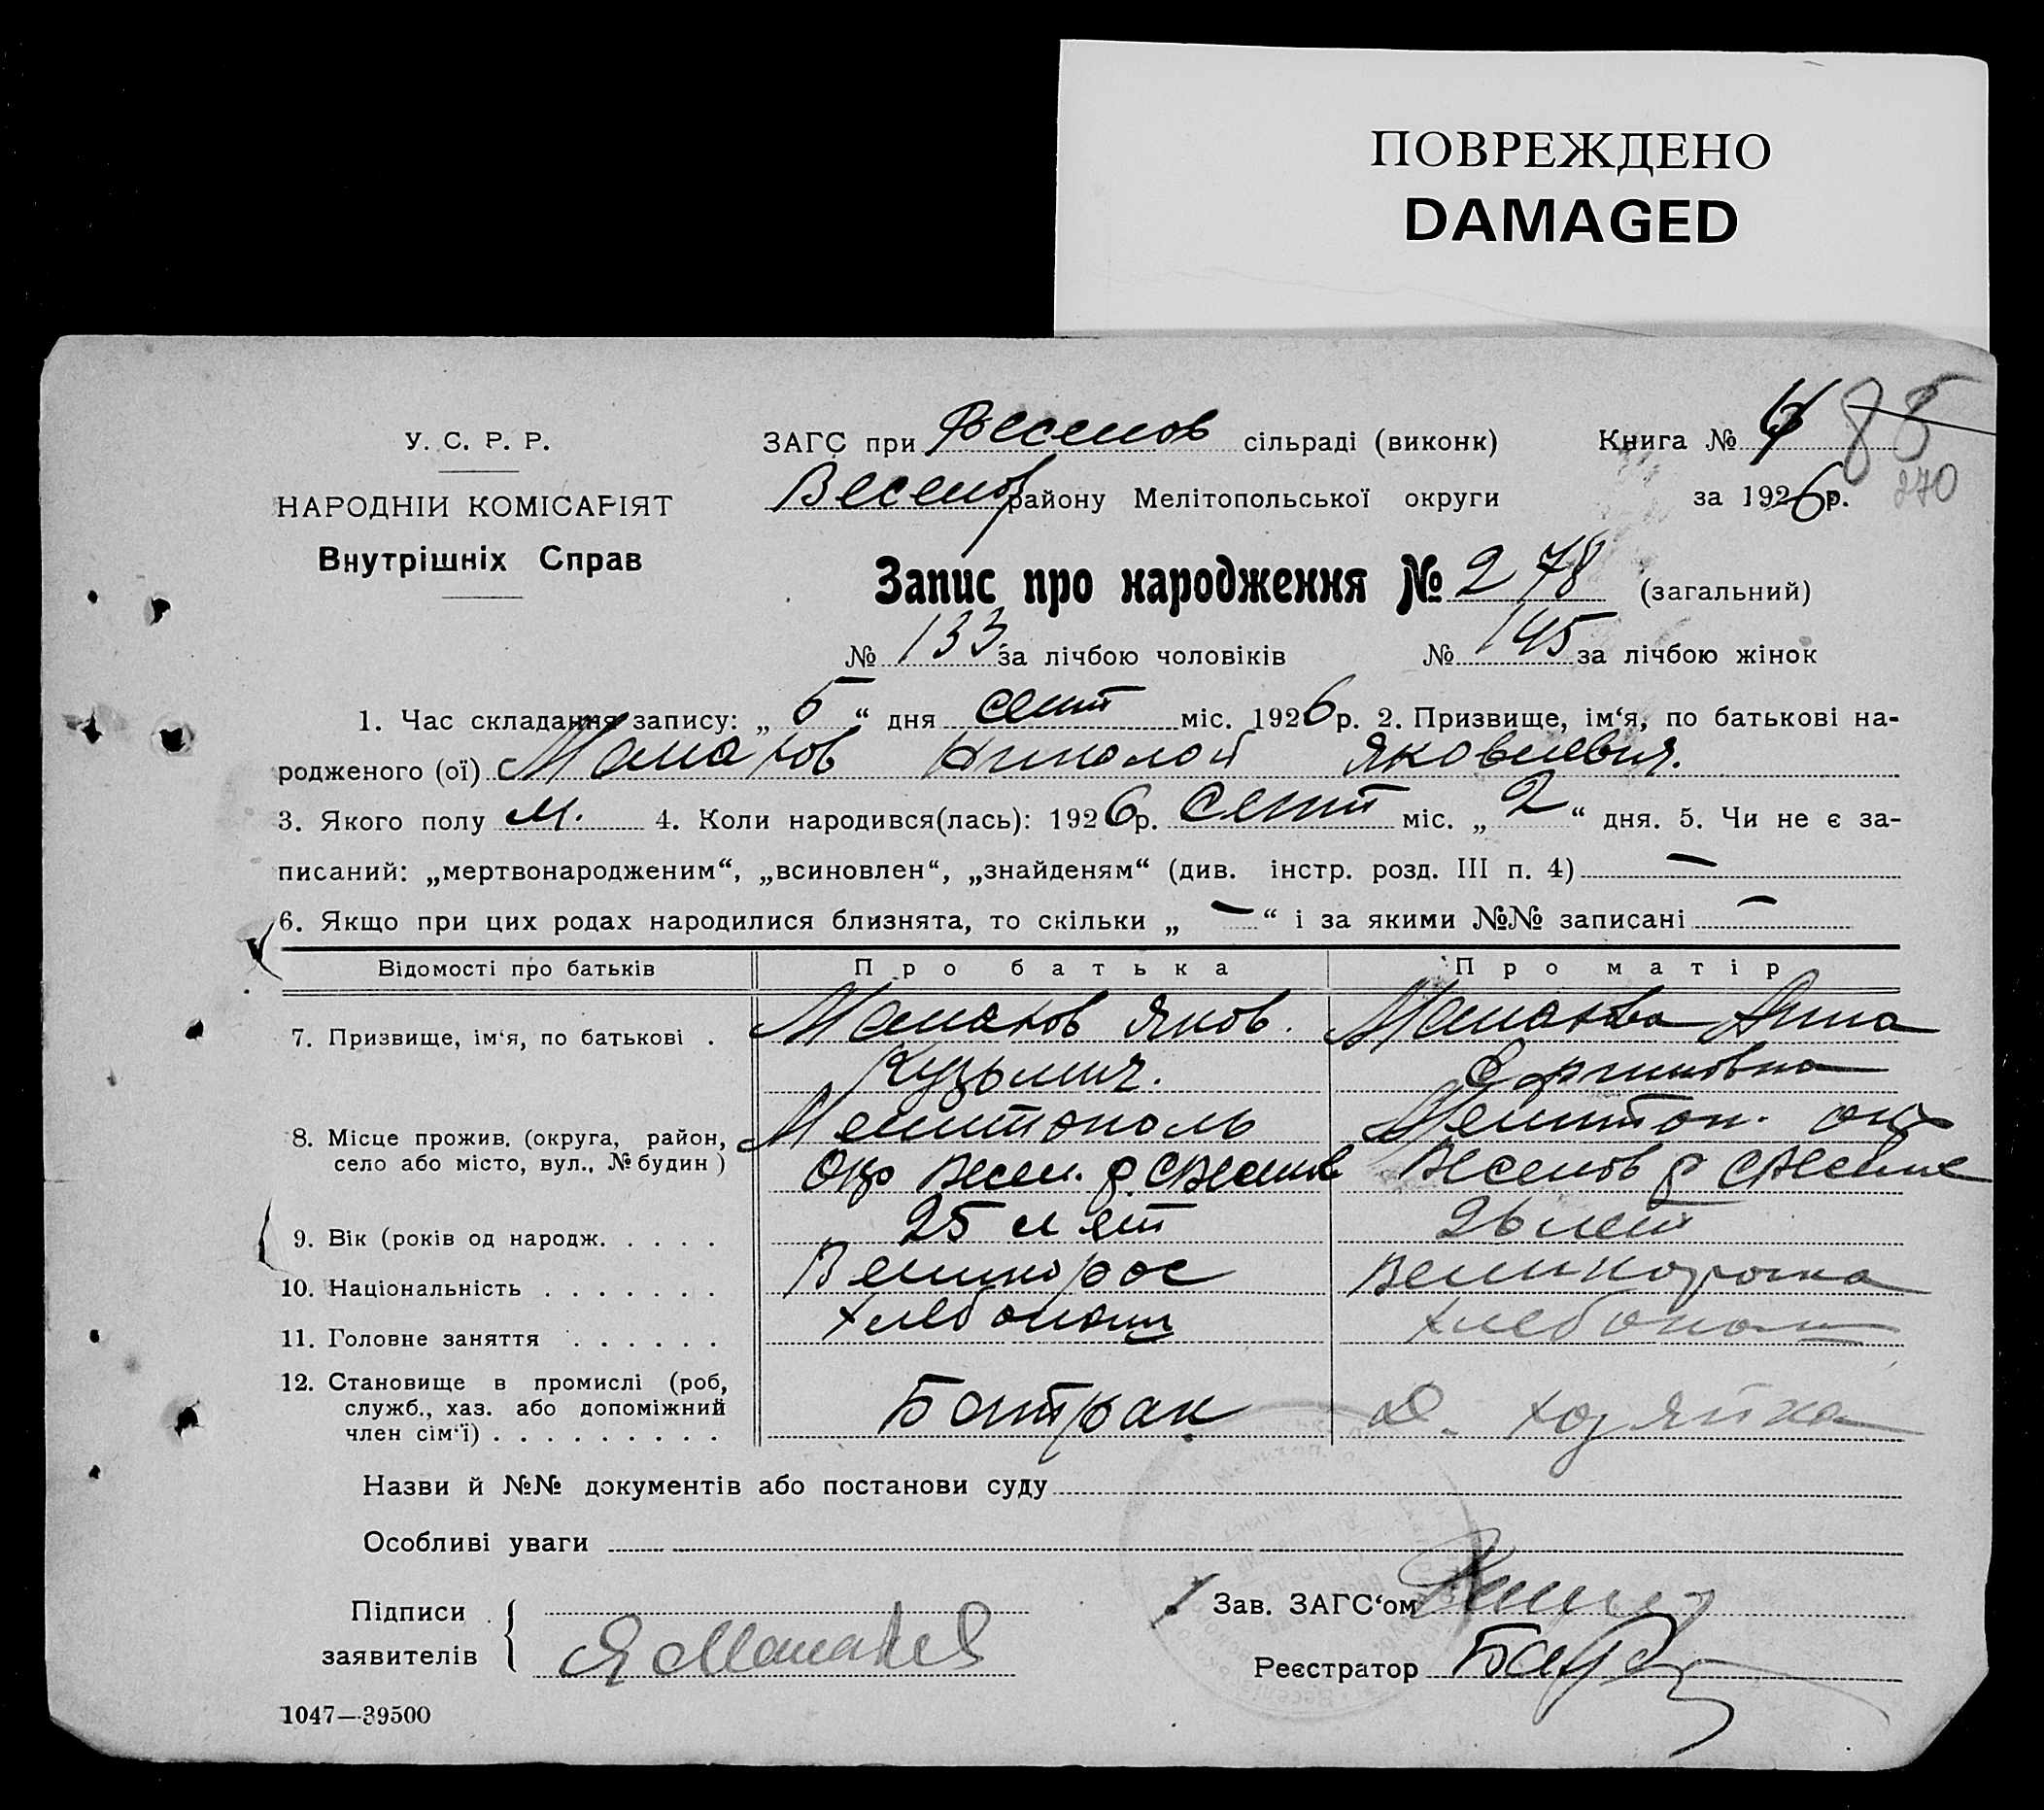 ПОВРЕЖДЕНО
DAMAGED
У. С. Р. Р.
НАРОДНІЙ КОМІСАРІЯТ
Внутрішніх Справ
ЗАГС при Веселов сільраді (виконк)
Веселов району Мелітопольської округи
Книга № 88
за 1926 р. 270
Запис про народження № 278 (загальний)
№ 133 за лічбою чоловіків № 145 за лічбою жінок
1. Час складання запису: „ 5 “ дня сент міс. 1926 р. 2. Призвище, ім‘я, по батькові на-
родженого (ої) Малахов Николай Яковлевич.
3. Якого полу м. 4. Коли народився(лась): 1926 р. Сент міс. „ 2 “ дня. 5. Чи не є за-
писаний: „мертвонародженим“, „всиновлен“, „знайденям“ (див. інстр. розд. III п. 4) —
6. Якщо при цих родах народилися близнята, то скільки „ — “ і за якими №№ записані —
Відомості про батьків Про батька Про матір
7. Призвище, ім‘я, по батькові . Малахов Яков. Малахова Анна
Кузьмич.
8. Місце прожив. (округа, район, Мелитополь Мелитоп. окр
село або місто, вул., № будин ) Окр Весел. р. С Весел Веселов р С Весел
9. Вік (років од народж. . . . . 25 лет 26 лет
10. Національність . . . . . . . Великорос Великороска
11. Головне заняття . . . . . . Хлебопаш Хлебопаш
12. Становище в промислі (роб,
служб., хаз. або допоміжний Батрак Д. хозяйка
член сім‘ї) . . . . . . . . .
Назви й №№ документів або постанови суду
Особливі уваги
Підписи Зав. ЗАГС‘ом
заявителів Я Малахов Реєстратор
1047—39500